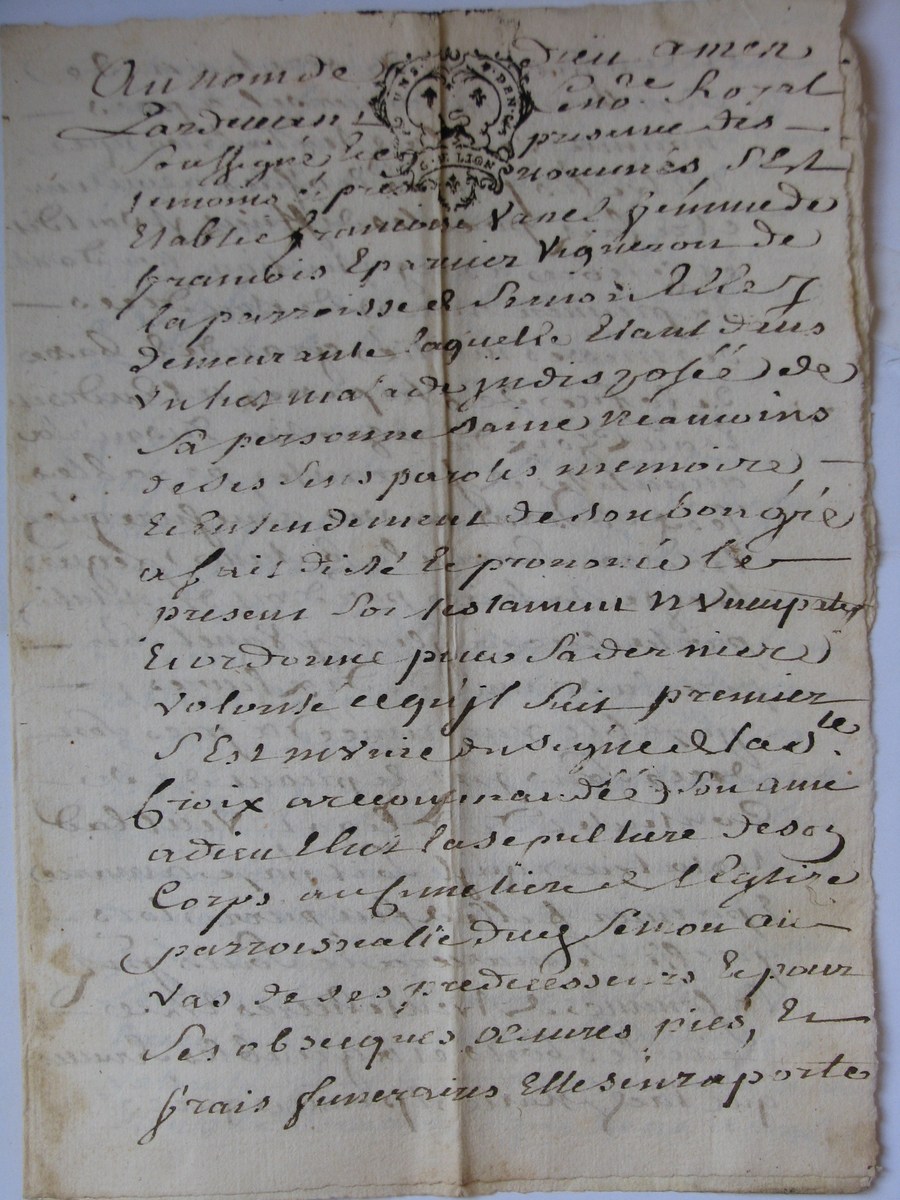 Au nom de Dieu amen
Pardevant le no.re Royal
soussigné et en presence des
temoins cy pres nommés s'est
Etablie francoise Vanel femme de
francois Eparvier Vigneron de
la parroisse de Simon Elle y
demeurante laquelle Etant dens
Un het malade jndisposée de
sa personne saine neamoins
de ses sens parolles memoire
Et Entendement de son bon gré
a fait dicté Et prononcé le
present son testament nuncupatif
Et ordonne pour sa derniere
volonté ce qu'jl suit premier
s'Est munie du signe de la s.te
Croix a recommandée son ame
a dieu Elut la sepulture de son
Corps au Cimetiere de l'Eglise
parroissealle dud Simon au
vas de ses predicesseurs Et pour
ses obseques oeuvres pies, Et
frais funeraires Elle s'en raporte